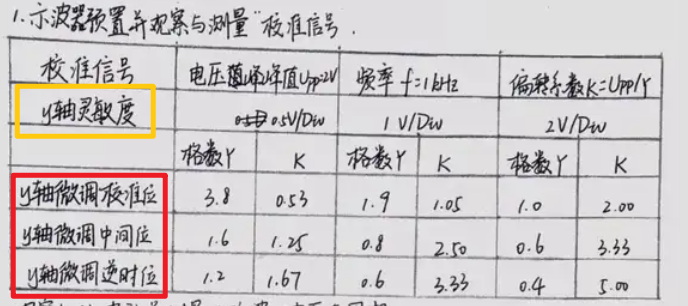 1.示波器预置并观察与测量"校准信号.
校准信号 电压峰峰值Upp=2V 频率 f=1kHz 偏转系数K=Upp/Y
y轴灵敏度 0.5V/Div 1V/Div 2V/Div
格数Y K 格数Y K 格数Y K
y轴微调校准位 3.8 0.53 1.9 1.05 1.0 2.00
y轴微调中间位 1.6 1.25 0.8 2.50 0.6 3.33
y轴微调逆时位 1.2 1.67 0.6 3.33 0.4 5.00